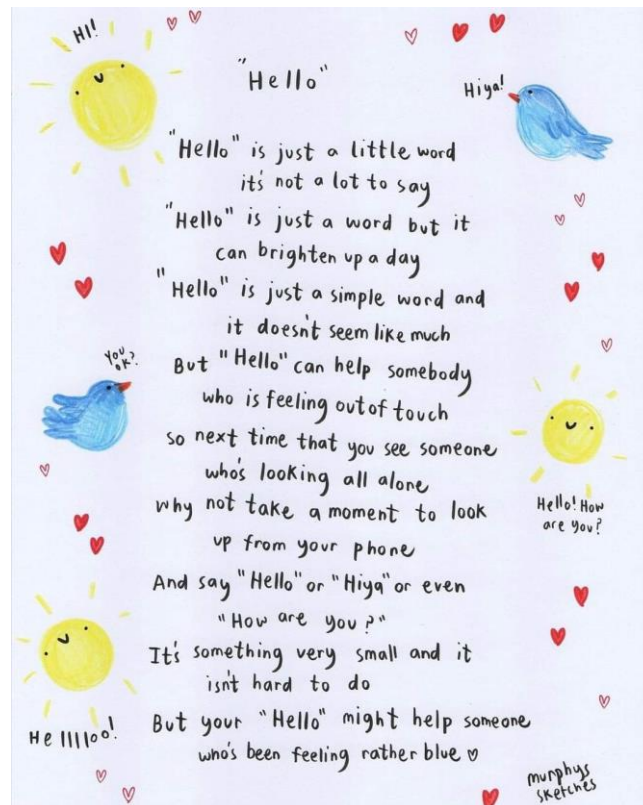 HI!
"Hello"
Hiya!
"Hello" is just a little word
it's not a lot to say
"Hello" is just a word but it
can brighten up a day
"Hello" is just a simple word and
it doesn't seem like much
You
OK?
But "Hello" can help somebody
who is feeling out of touch
so next time that you see someone
who's looking all alone
why not take a moment to look
up from your phone
Hello! How
are you?
And say "Hello" or "Hiya" or even
"How are you?"
It's something very small and it
isn't hard to do
He lllloo!
But your "Hello" might help someone
who's been feeling rather blue ♡
murphys
sketches